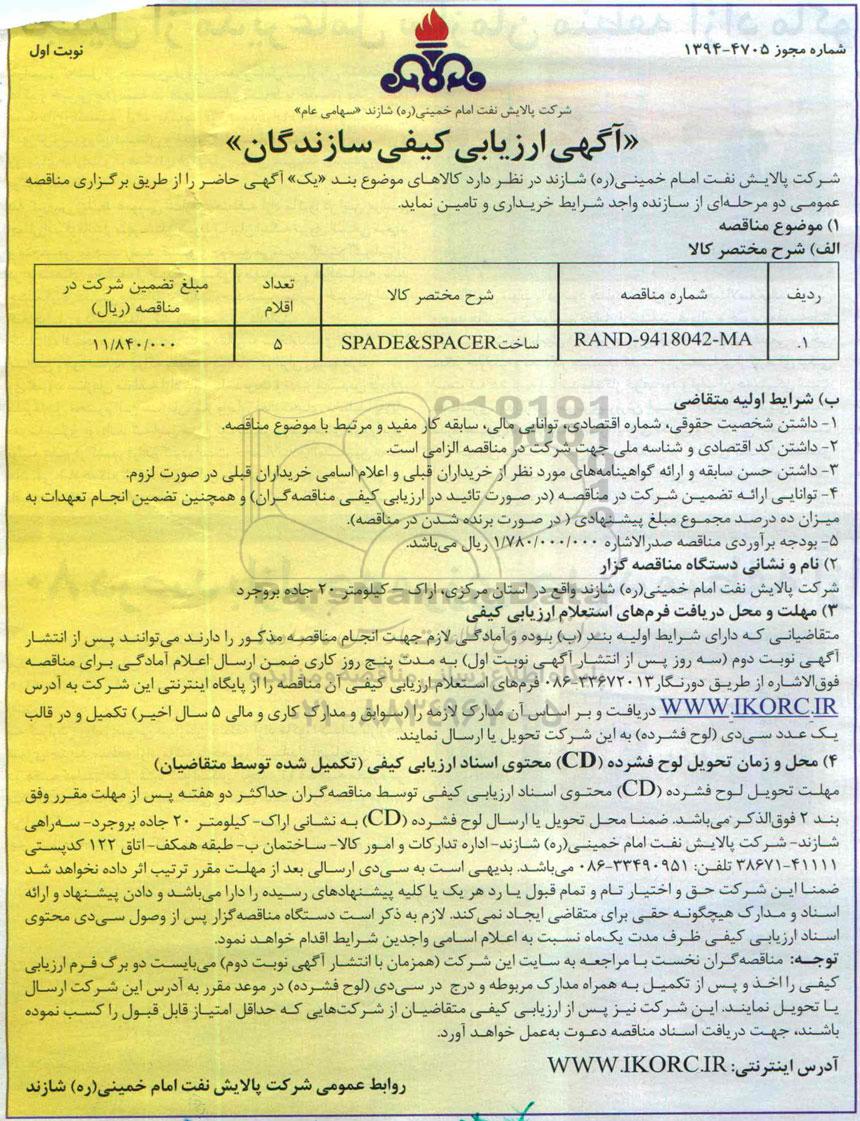 شماره مجوز ۴۷۰۵-۱۳۹۴
نوبت اول
شرکت پالایش نفت امام خمینی(ره) شازند «سهامی عام»
«آگهی ارزیابی کیفی سازندگان»
شرکت پالایش نفت امام خمینی(ره) شازند در نظر دارد کالاهای موضوع بند «یک» آگهی حاضر را از طریق برگزاری مناقصه
عمومی دو مرحله‌ای از سازنده واجد شرایط خریداری و تامین نماید.
۱) موضوع مناقصه
الف) شرح مختصر کالا
ردیف | شماره مناقصه | شرح مختصر کالا | تعداد اقلام | مبلغ تضمین شرکت در مناقصه (ریال)
۱. | RAND-9418042-MA | ساخت SPADE&SPACER | ۵ | ۱۱/۸۴۰/۰۰۰
ب) شرایط اولیه متقاضی
۱- داشتن شخصیت حقوقی، شماره اقتصادی، توانایی مالی، سابقه کار مفید و مرتبط با موضوع مناقصه.
۲- داشتن کد اقتصادی و شناسه ملی جهت شرکت در مناقصه الزامی است.
۳- داشتن حسن سابقه و ارائه گواهینامه‌های مورد نظر از خریداران قبلی و اعلام اسامی خریداران قبلی در صورت لزوم.
۴- توانایی ارائه تضمین شرکت در مناقصه (در صورت تائید در ارزیابی کیفی مناقصه‌گران) و همچنین تضمین انجام تعهدات به
میزان ده درصد مجموع مبلغ پیشنهادی ( در صورت برنده شدن در مناقصه).
۵- بودجه برآوردی مناقصه صدرالاشاره ۱/۷۸۰/۰۰۰/۰۰۰ ریال می‌باشد.
۲) نام و نشانی دستگاه مناقصه گزار
شرکت پالایش نفت امام خمینی(ره) شازند واقع در استان مرکزی، اراک - کیلومتر ۲۰ جاده بروجرد
۳) مهلت و محل دریافت فرم‌های استعلام ارزیابی کیفی
متقاضیانی که دارای شرایط اولیه بند (ب) بوده و آمادگی لازم جهت انجام مناقصه مذکور را دارند می‌توانند پس از انتشار
آگهی نوبت دوم (سه روز پس از انتشار آگهی نوبت اول) به مدت پنج روز کاری ضمن ارسال اعلام آمادگی برای مناقصه
فوق‌الاشاره از طریق دورنگار ۳۳۶۷۲۰۱۳-۰۸۶ فرم‌های استعلام ارزیابی کیفی آن مناقصه را از پایگاه اینترنتی این شرکت به آدرس
WWW.IKORC.IR دریافت و بر اساس آن مدارک لازمه را (سوابق و مدارک کاری و مالی ۵ سال اخیر) تکمیل و در قالب
یک عدد سی‌دی (لوح فشرده) به این شرکت تحویل یا ارسال نمایند.
۴) محل و زمان تحویل لوح فشرده (CD) محتوی اسناد ارزیابی کیفی (تکمیل شده توسط متقاضیان)
مهلت تحویل لوح فشرده (CD) محتوی اسناد ارزیابی کیفی توسط مناقصه‌گران حداکثر دو هفته پس از مهلت مقرر وفق
بند ۲ فوق‌الذکر می‌باشد. ضمنا محل تحویل یا ارسال لوح فشرده (CD) به نشانی اراک- کیلومتر ۲۰ جاده بروجرد- سه‌راهی
شازند- شرکت پالایش نفت امام خمینی(ره) شازند- اداره تدارکات و امور کالا- ساختمان ب- طبقه همکف- اتاق ۱۲۲ کدپستی
۴۱۱۱۱-۳۸۶۷۱ تلفن: ۳۳۴۹۰۹۵۱-۰۸۶ می‌باشد. بدیهی است به سی‌دی ارسالی بعد از مهلت مقرر ترتیب اثر داده نخواهد شد
ضمنا این شرکت حق و اختیار تام و تمام قبول یا رد هر یک یا کلیه پیشنهادهای رسیده را دارا می‌باشد و دادن پیشنهاد و ارائه
اسناد و مدارک هیچگونه حقی برای متقاضی ایجاد نمی‌کند. لازم به ذکر است دستگاه مناقصه‌گزار پس از وصول سی‌دی محتوی
اسناد ارزیابی کیفی ظرف مدت یک‌ماه نسبت به اعلام اسامی واجدین شرایط اقدام خواهد نمود.
توجه: مناقصه‌گران نخست با مراجعه به سایت این شرکت (همزمان با انتشار آگهی نوبت دوم) می‌بایست دو برگ فرم ارزیابی
کیفی را اخذ و پس از تکمیل به همراه مدارک مربوطه و درج در سی‌دی (لوح فشرده) در موعد مقرر به آدرس این شرکت ارسال
یا تحویل نمایند. این شرکت نیز پس از ارزیابی کیفی متقاضیان از شرکت‌هایی که حداقل امتیاز قابل قبول را کسب نموده
باشند، جهت دریافت اسناد مناقصه دعوت به‌عمل خواهد آورد.
آدرس اینترنتی: WWW.IKORC.IR
روابط عمومی شرکت پالایش نفت امام خمینی(ره) شازند